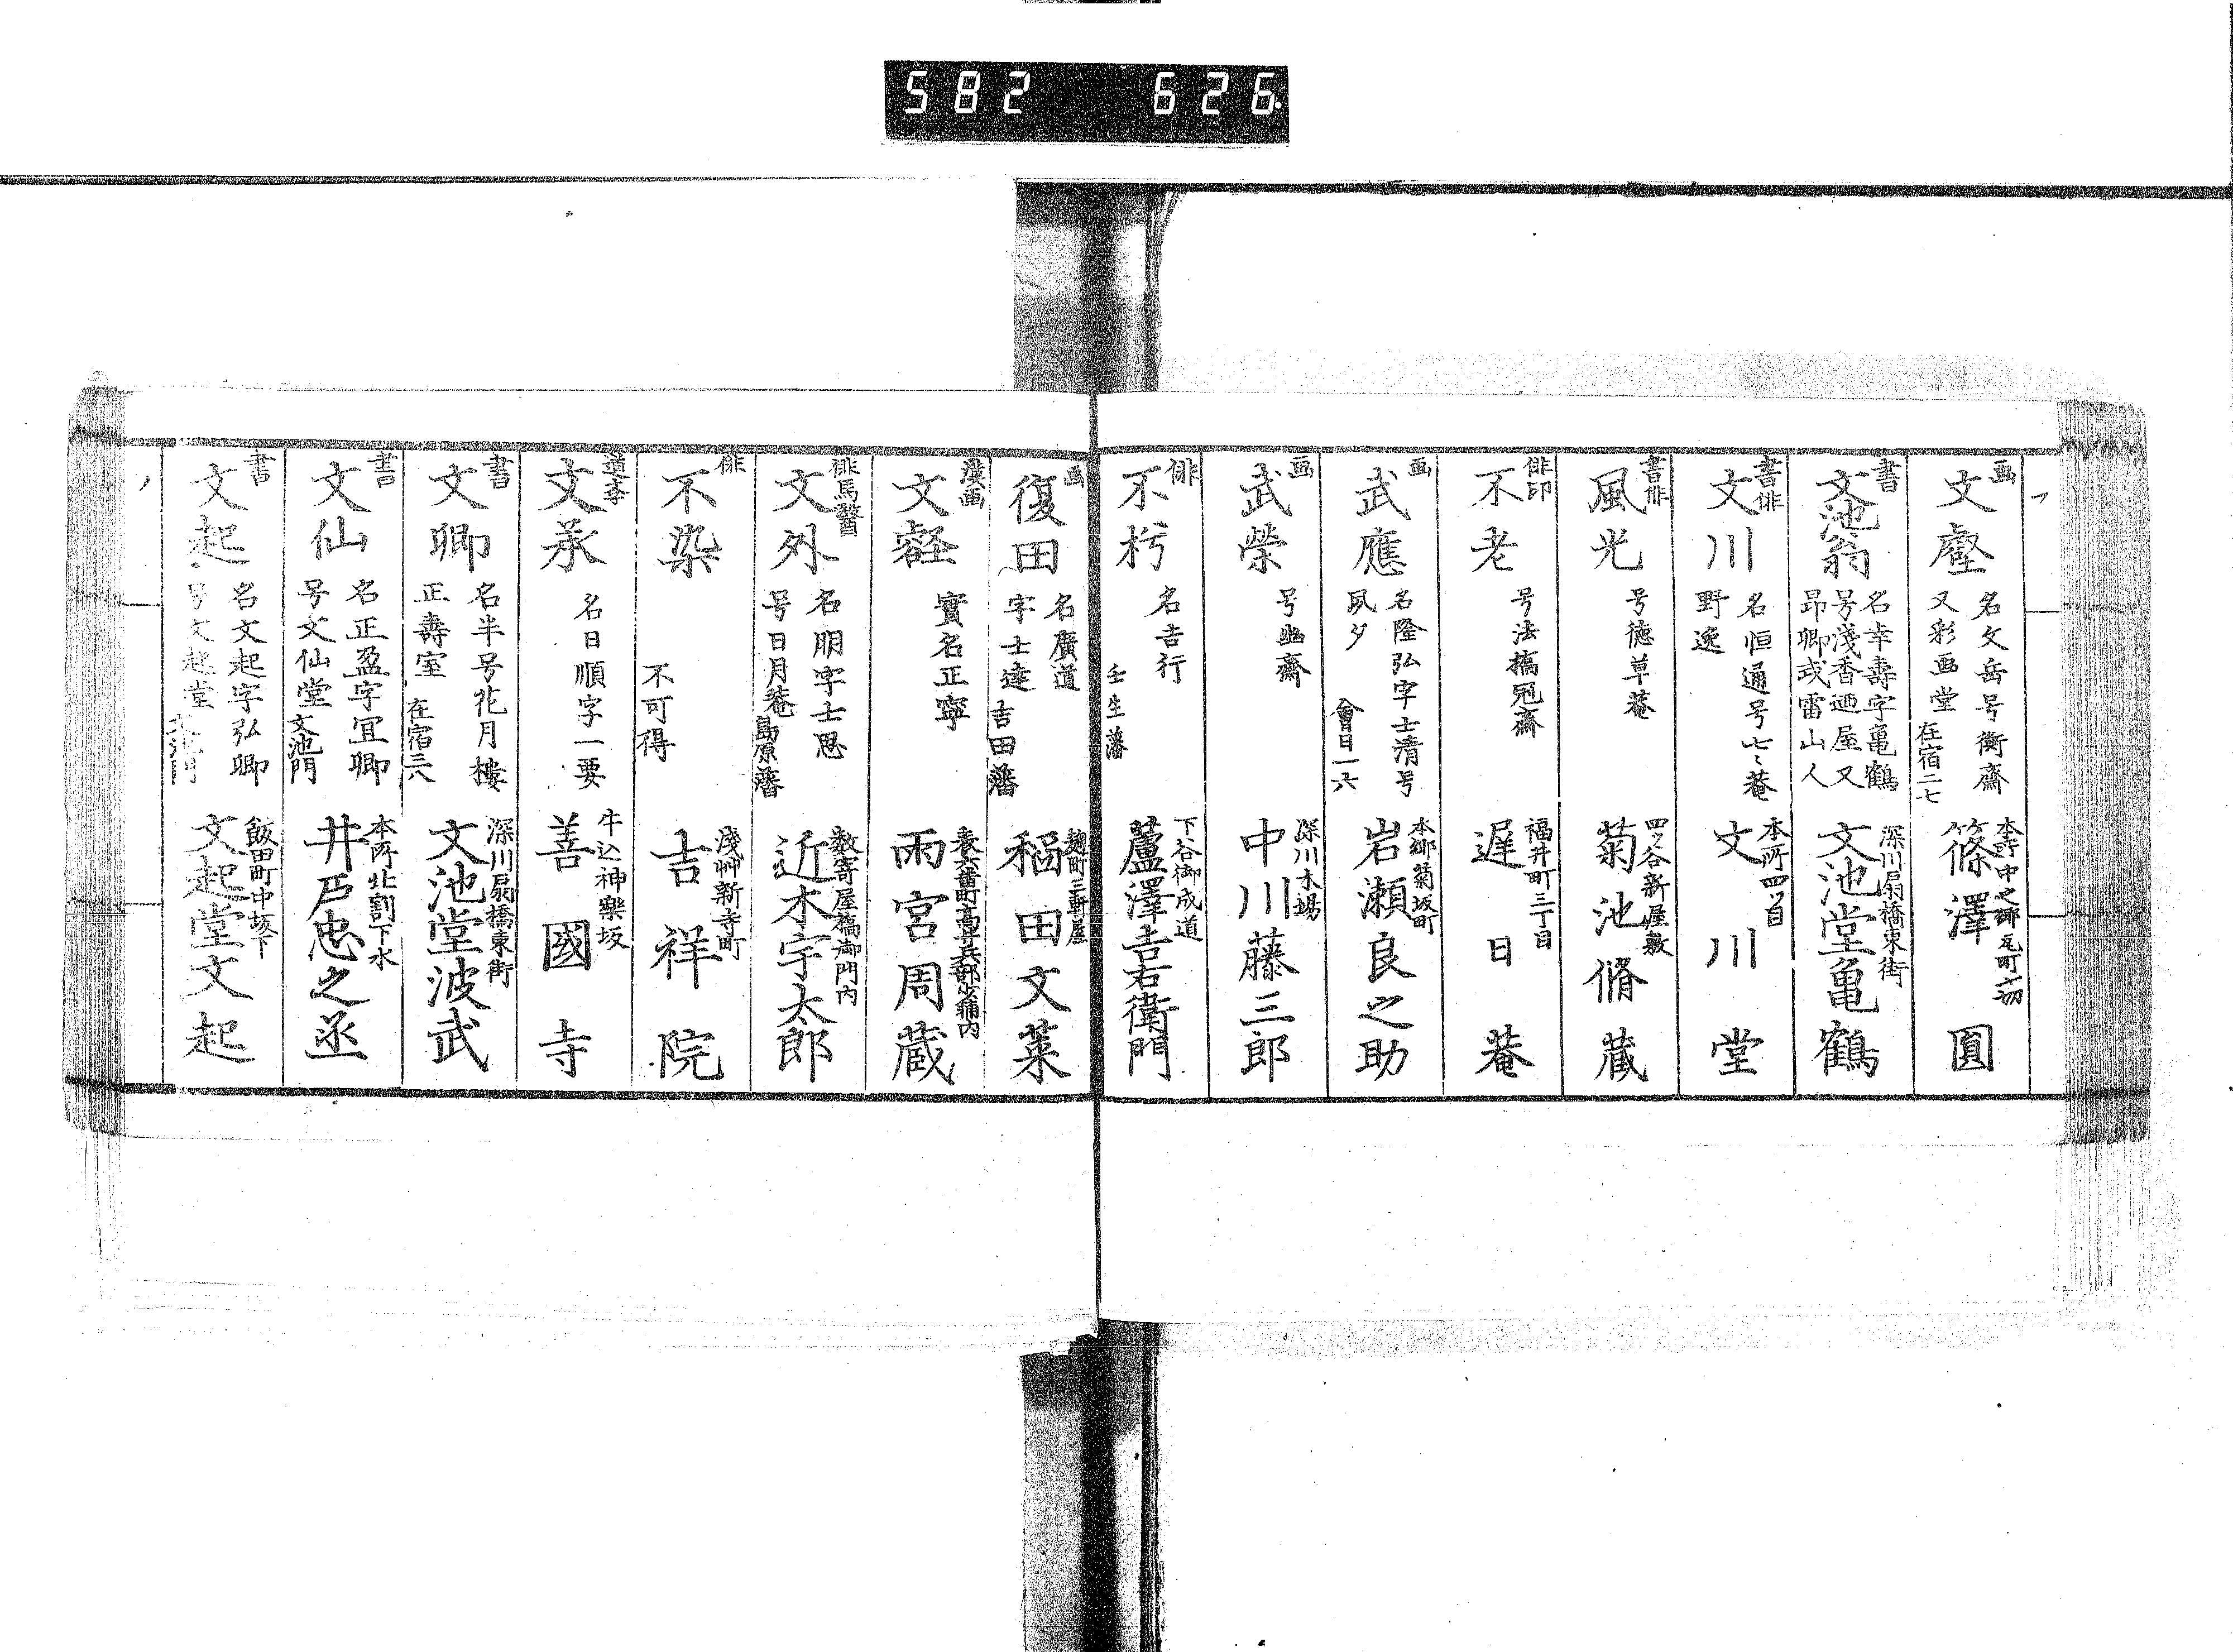 582 626.
フ
画
文壑
名文岳号衡齋
又彩画堂
在宿二七
本所中之郷瓦町
篠澤圓
書
文池翁
名幸壽字亀鶴
号淺香廼屋又
昻卿或雷山人
深川扇橋東街
文池堂亀鶴
書俳
文川
名恒通号七々菴
野逸
本所四ツ目
文川堂
書俳
風光
号德草菴
四ッ谷新屋敷
菊池脩蔵
俳印
不老
号法橋冠齋
福井町三丁目
遅日菴
画
武應
名隆弘字士清号
夙夕
會日一六
本郷菊坂町
岩瀬良之助
画
武榮
号幽齋
深川木場
中川藤三郎
俳
不朽
名吉行
壬生藩
下谷御成道
蘆澤吉右衛門
画
復田
名廣道
字士達
吉田藩
麹町三軒屋
稲田文菜
漢画
文
實名正寧
表六番町兵部少輔内
雨宮周蔵
俳馬醫
文外
名明字士思
号日月菴
島原藩
数寄屋橋御門内
近木宇太郎
俳
不染
不可得
淺艸新寺町
吉祥院
文承
名日順字一要
牛込神樂坂
善國寺
書
文卿
名半号花月樓
正壽室
在宿三八
深川扇橋東街
文池堂波武
書
文仙
名正盈字冝卿
号文仙堂
文池門
本所北割下水
井戸忠之丞
書
文起
名文起字弘卿
号文起堂
文池門
飯田町中坂下
文起堂文起